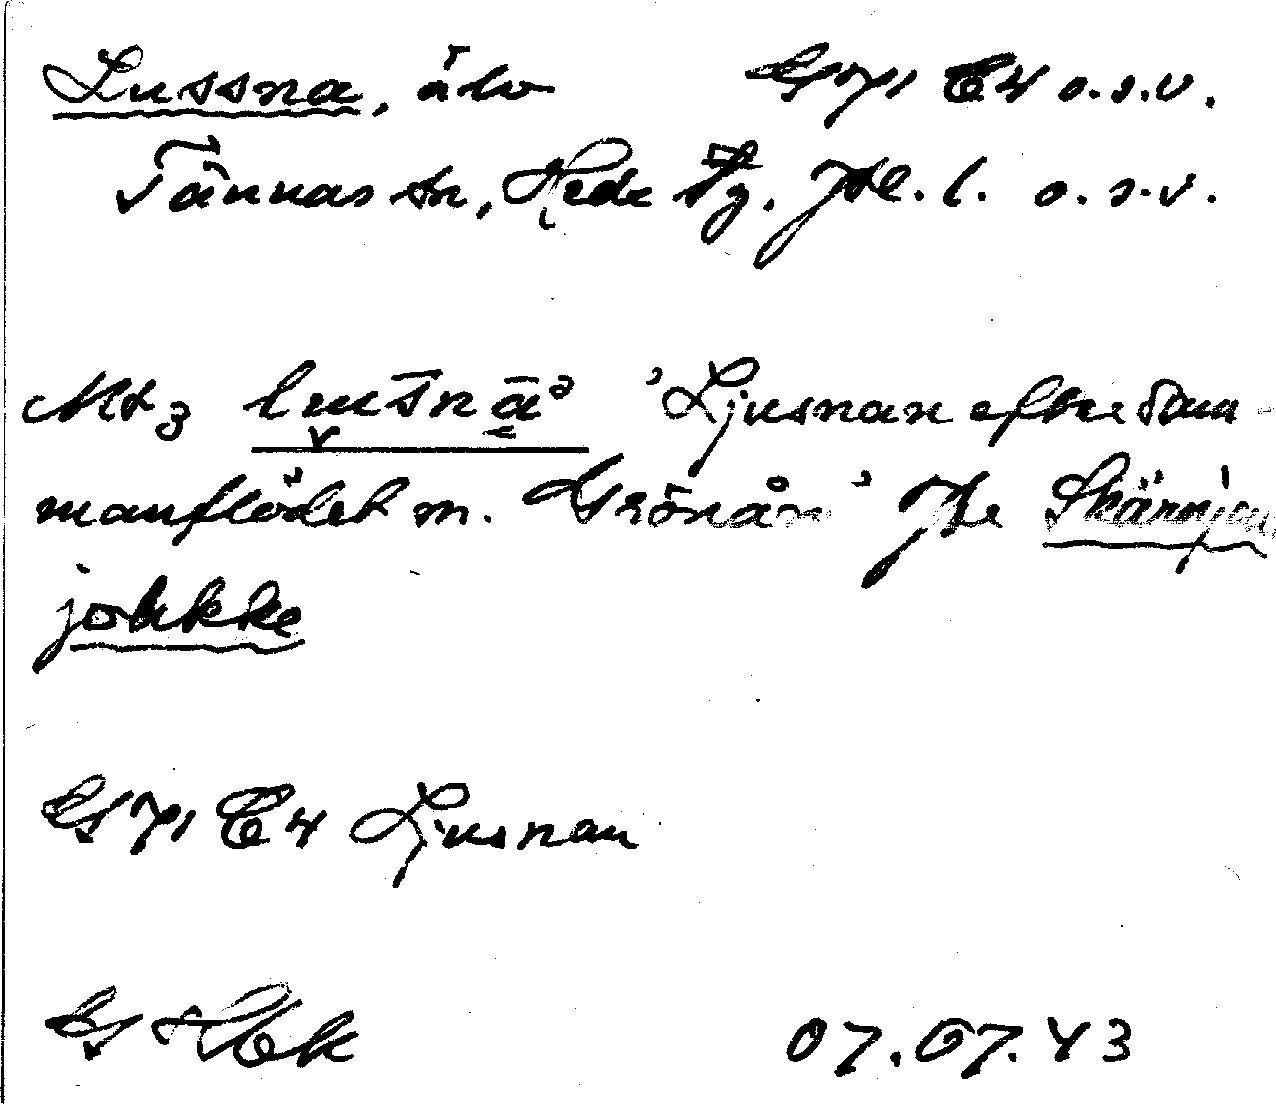 Lussna, älv GS 71 C4 o.s.v.
Tännäs sn, Hede tg. Jtl. l. o.s.v.
Mtz 'Ljusnan efter sam-
manflödet m. Grönån' Jfr
jokke
GS 71 C4 Ljusnan
GS 07.07.43